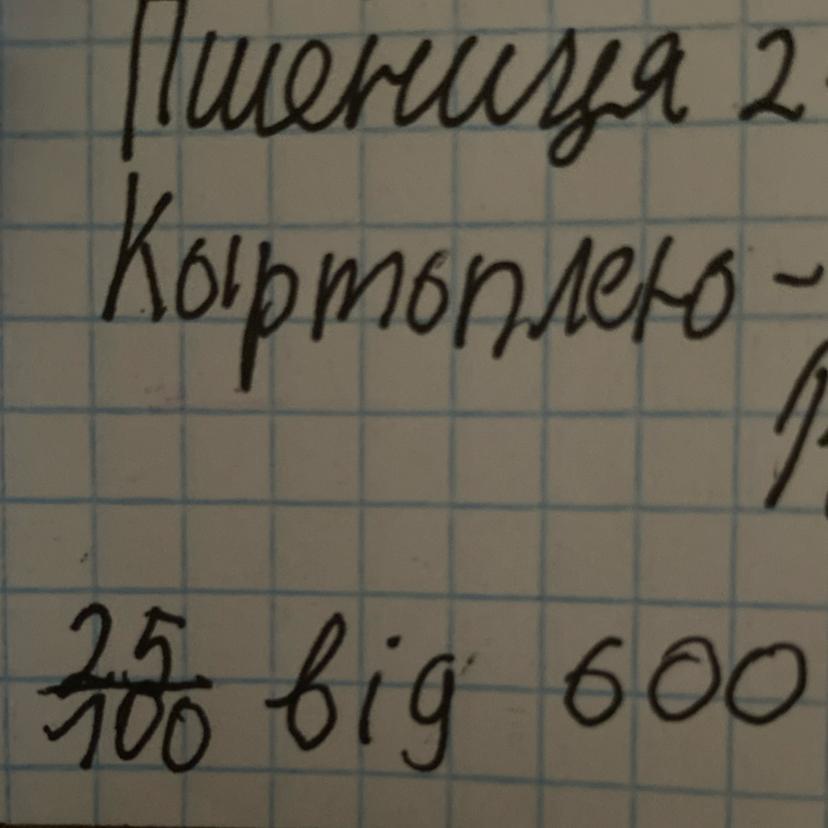 Пшениця 2
Картоплею -
25/100 від 600